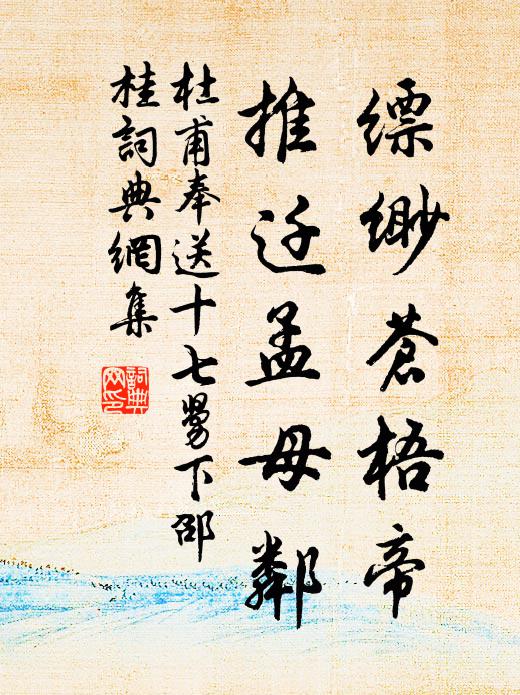 缥緲蒼梧帝
推迁孟母鄰
杜甫奉送十七舅下邵
桂詞典網集
詞典網印